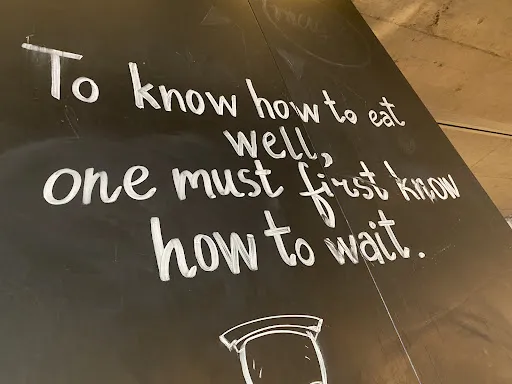 To know how to eat
well,
one must first know
how to wait.